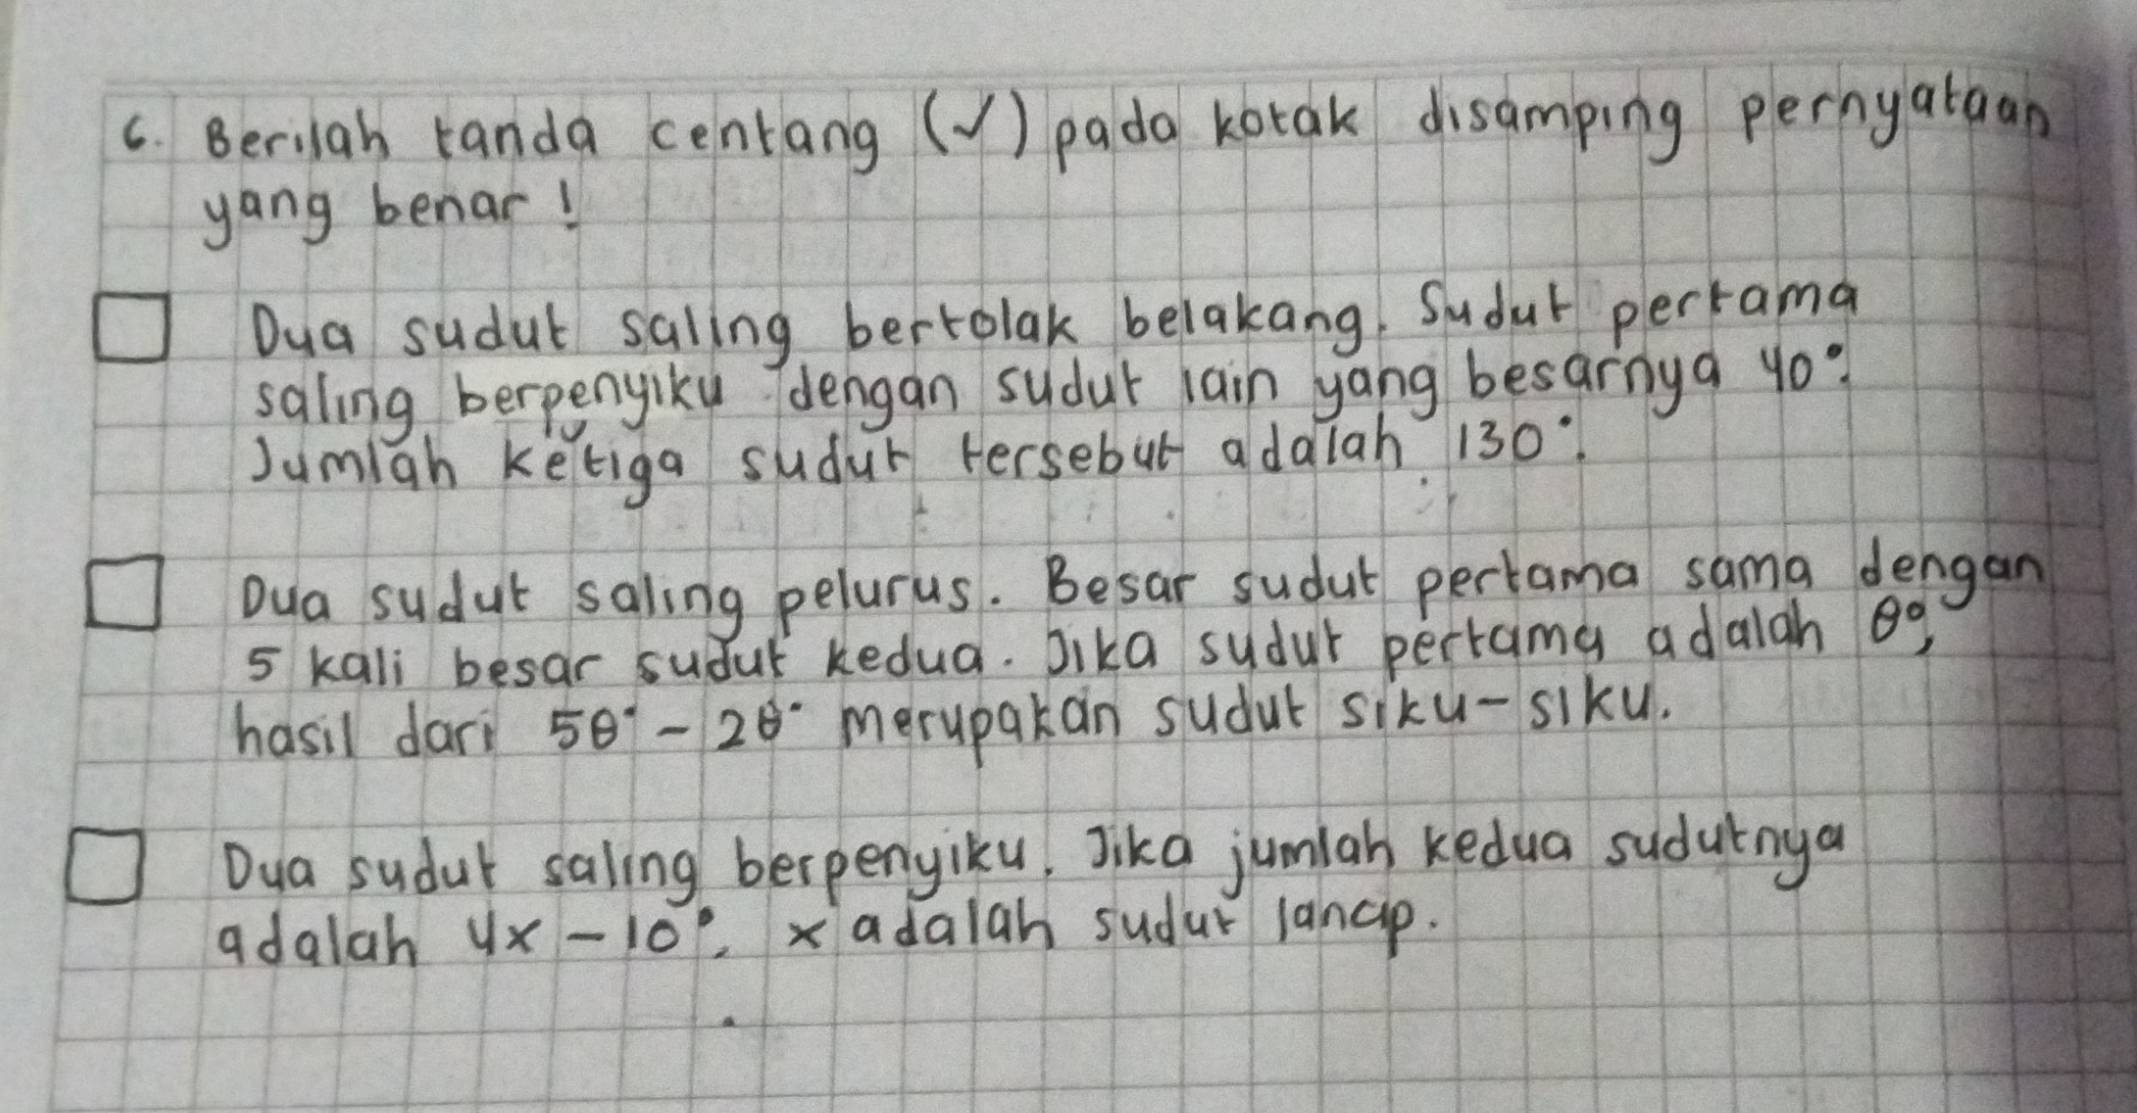 6. Berilah tanda centang (✓) pada kotak disamping pernyataan
yang benar !
Dua sudut saling bertolak belakang. Sudut pertama
saling berpenyiku dengan sudut lain yang besarnya 40°.
Jumlah ketiga sudut tersebut adalah 130°.
Dua sudut saling pelurus. Besar sudut pertama sama dengan
5 kali besar sudut kedua. Jika sudut pertama adalah θ°,
hasil dari 5θ° - 2θ° merupakan sudut siku-siku.
Dua sudut saling berpenyiku. Jika jumlah kedua sudutnya
adalah 4x - 10°, x adalah sudut lancip.